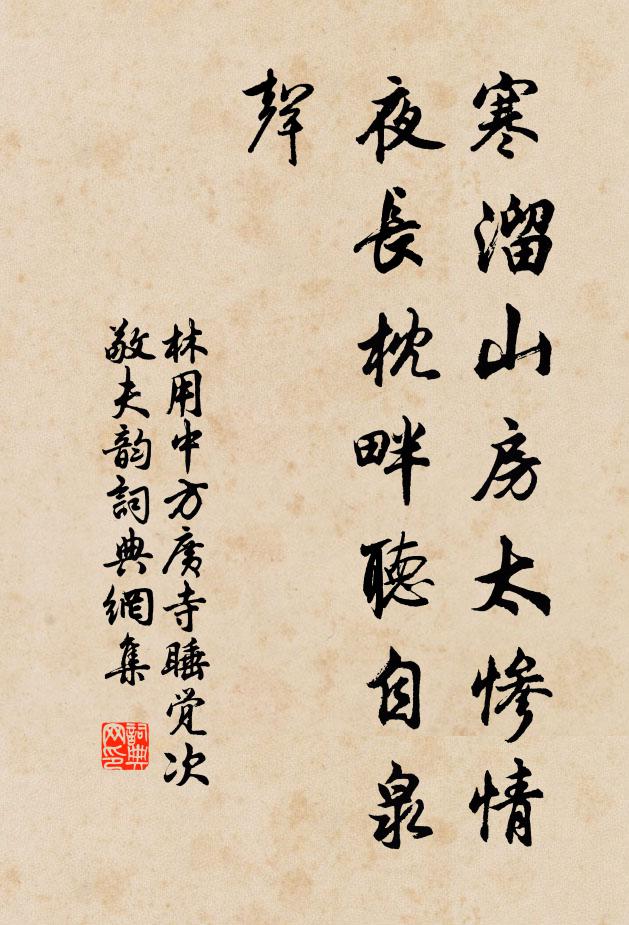 寒溜山房太慘情
夜長枕畔聽自泉
聲
林用中方廣寺睡觉次
敬夫韵詞典網集
詞典
网印